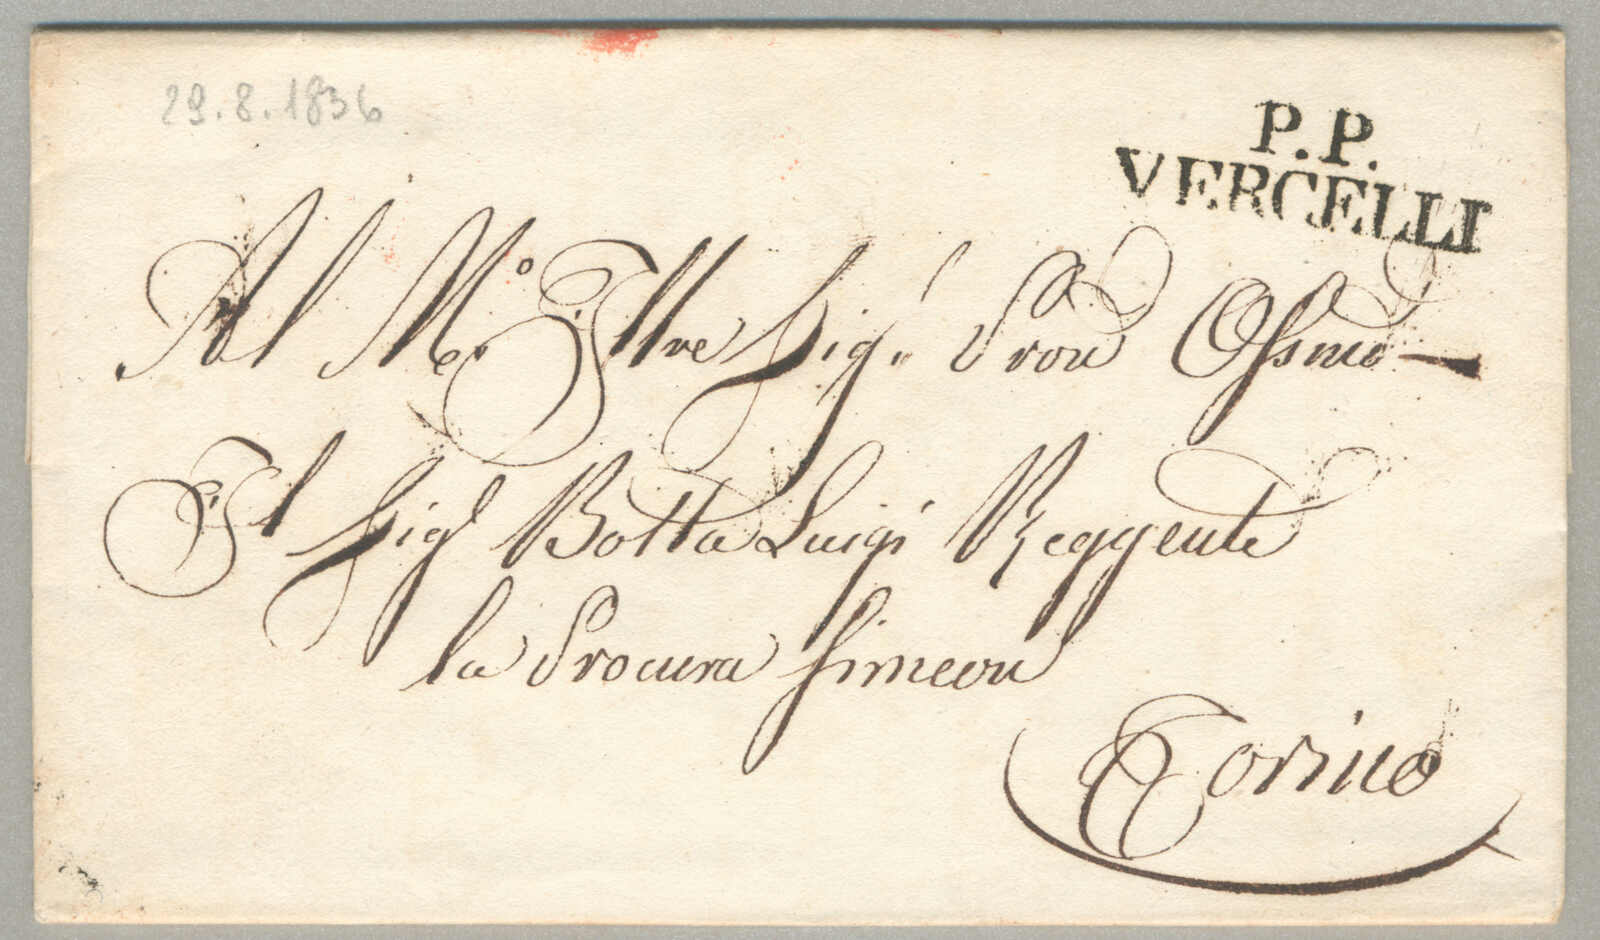 29.8.1836
P.P.
VERCELLI
Al M.º Illre Sig.r Sig.r Pron Ossmo
Il Sigr Botta Luigi Reggente
la Procura Simeon
Torino